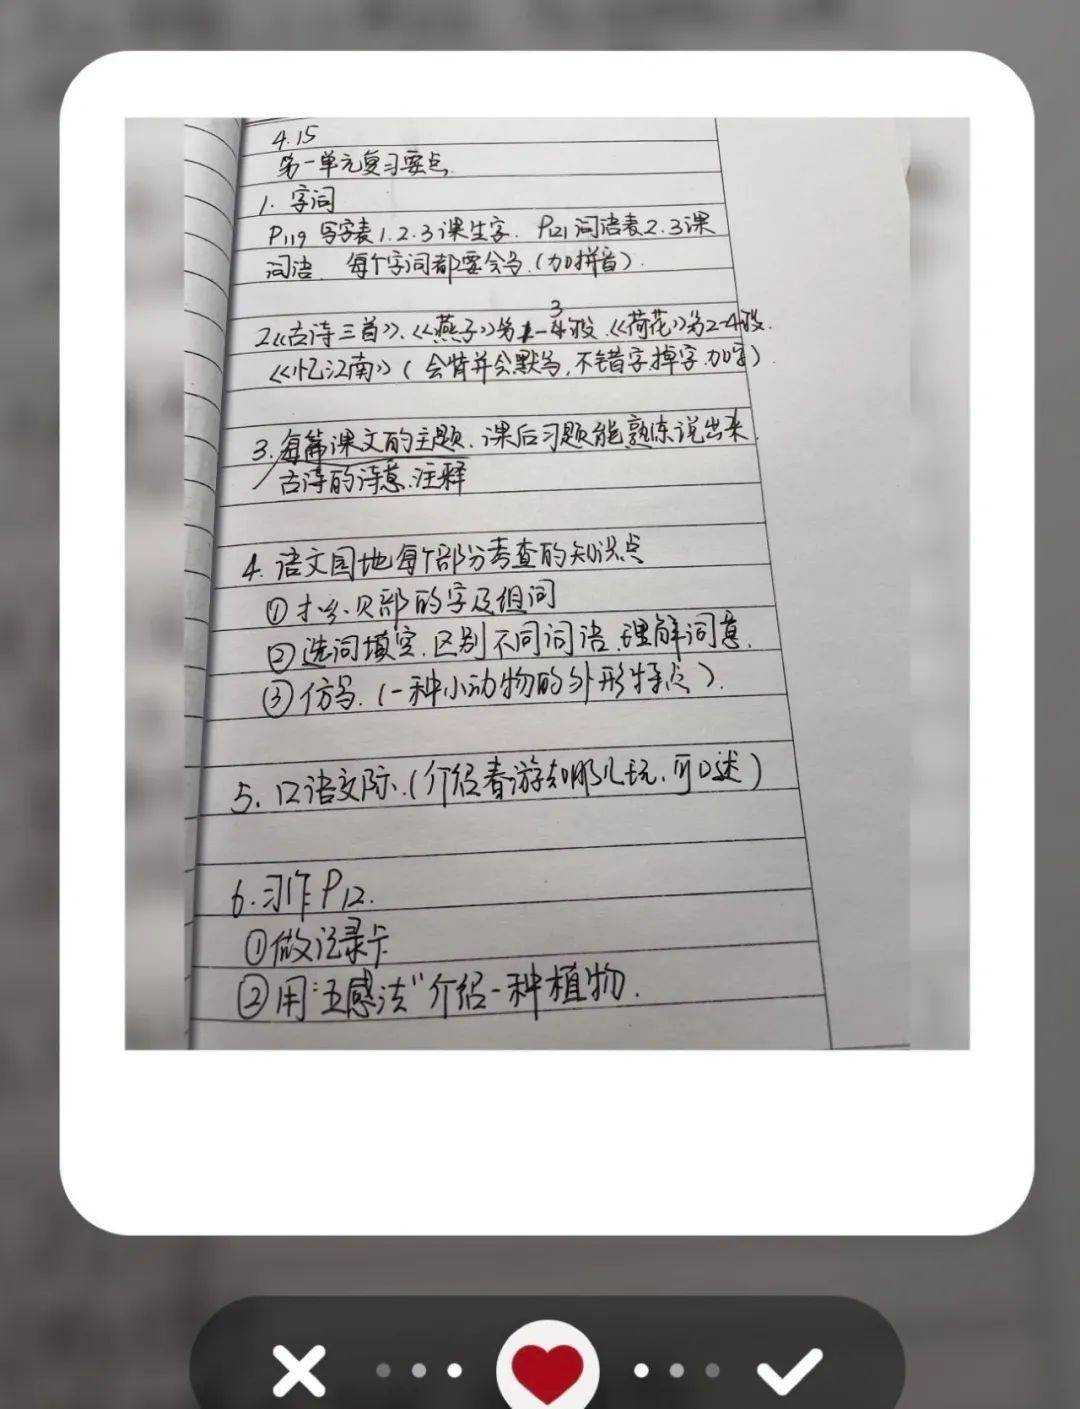 4.15
第一单元复习要点
1. 字词
P119 写字表1.2.3课生字. P121词语表2.3课
词语. 每个字词都要会写.(加拼音).
2.《古诗三首》.《燕子》第1-3段.《荷花》第2-4段.
《忆江南》(会背并会默写,不错字掉字加字)
3. 每篇课文的主题.课后习题能熟练说出来.
古诗的诗意.注释
4. 语文园地每个部分考查的知识点
①扌纟贝部的字及组词
②选词填空.区别不同词语.理解词意.
③仿写.(一种小动物的外形特点).
5. 口语交际.(介绍春游去哪儿玩.可口述)
6.习作P12.
①做记录卡
②用“五感法”介绍一种植物.